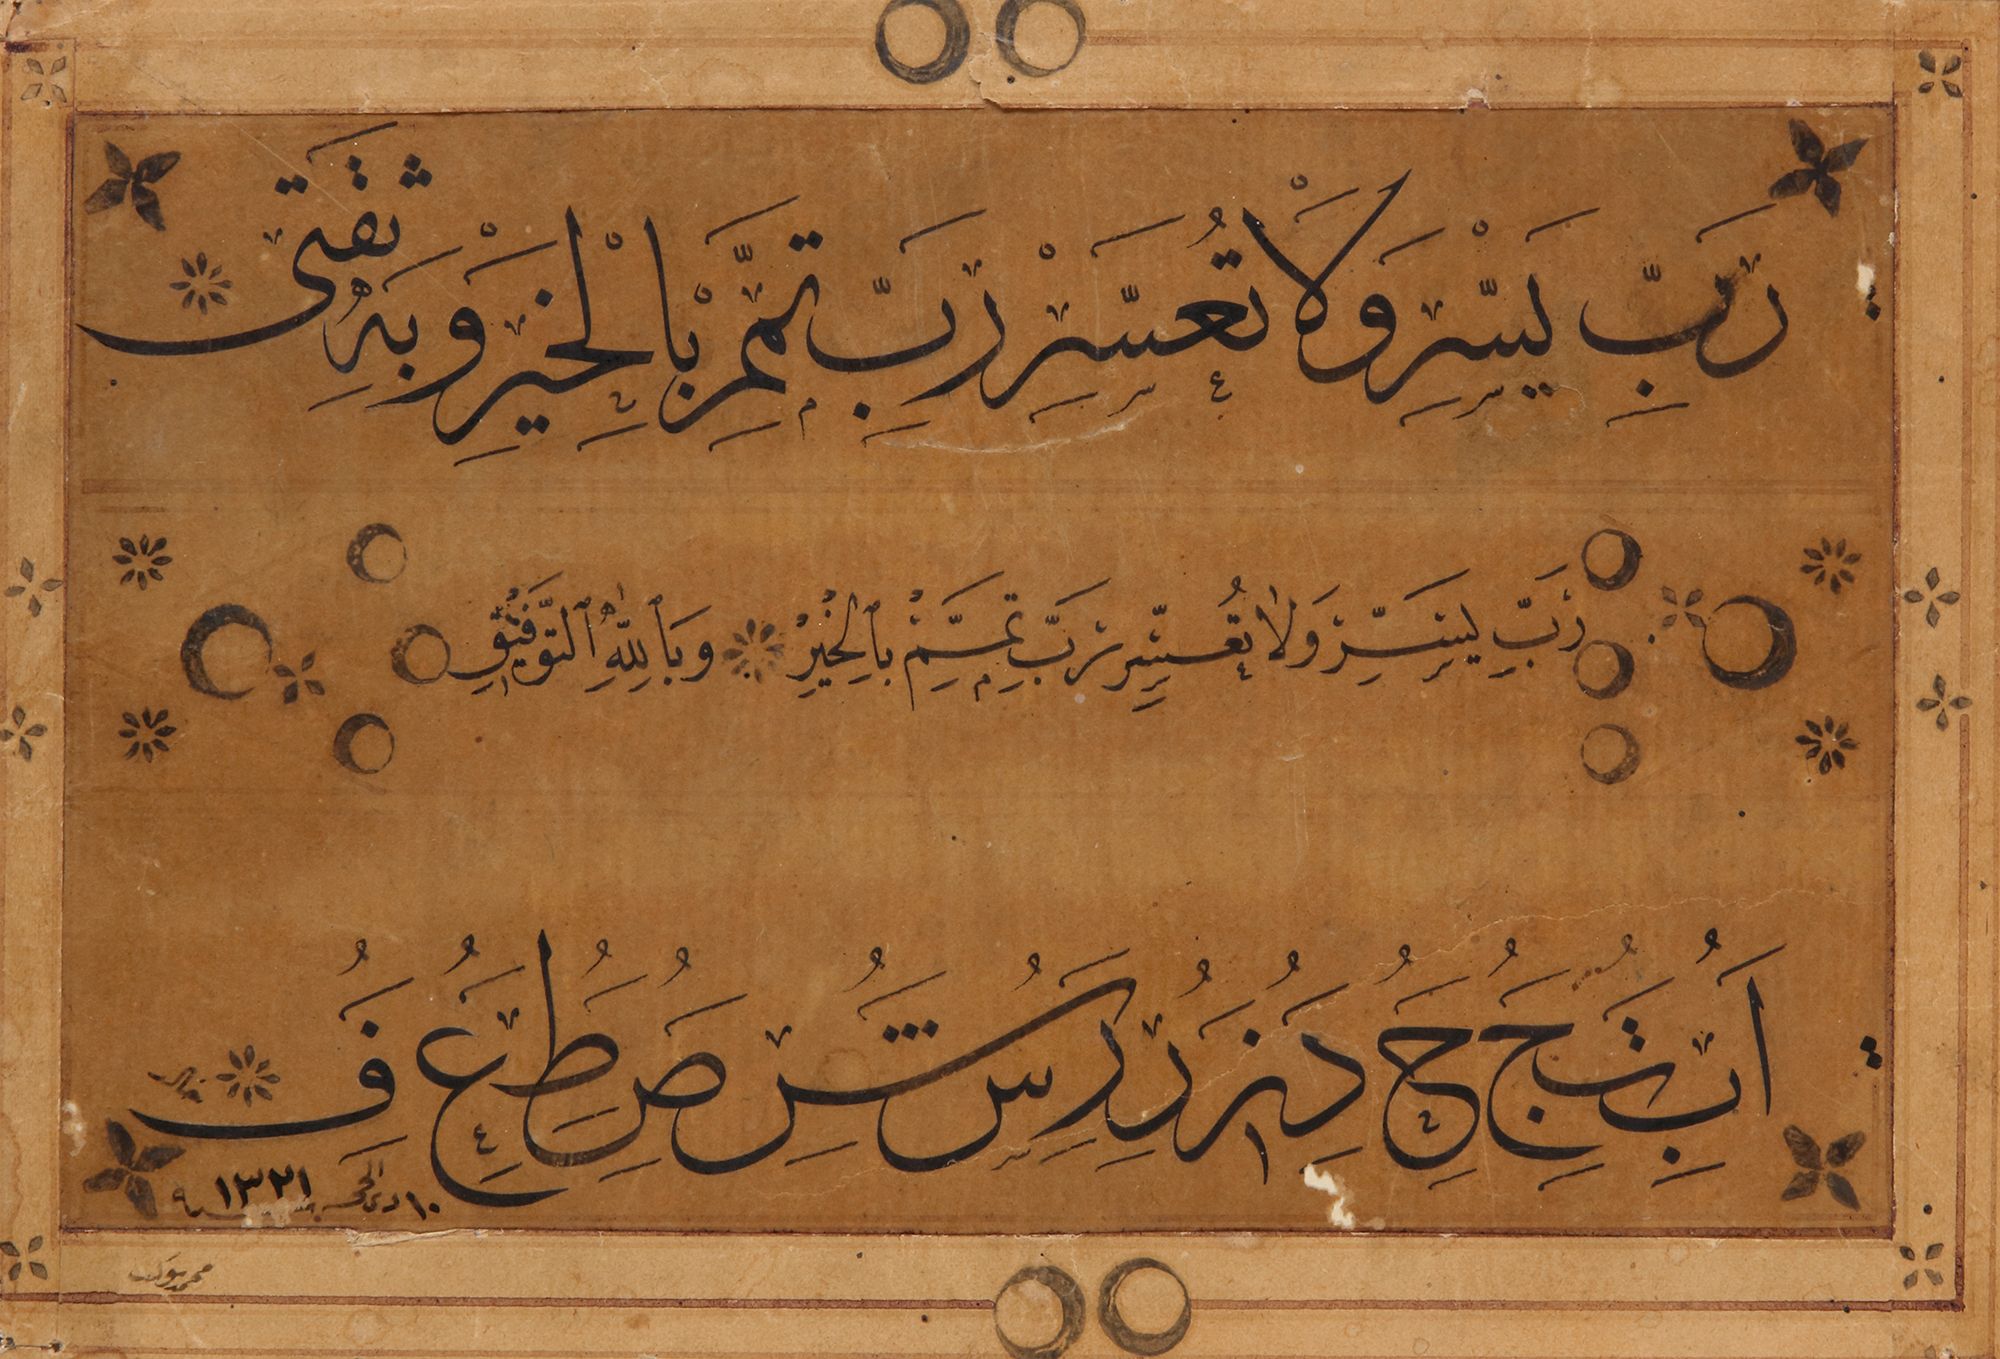 رَبِّ يَسِّرْ وَلَا تُعَسِّرْ رَبِّ تَمِّمْ بِالْخَيْرِ وَبِهِ ثِقَتِي
رَبِّ يَسِّرْ وَلَا تُعَسِّرْ رَبِّ تَمِّمْ بِالْخَيْرِ وَبِاللّٰهِ التَّوْفِيقِ
ا ب ت ج ح د ذ ر ز س ش ص ط ع ف
١٠ ذي الحجه سنه ١٣٢١